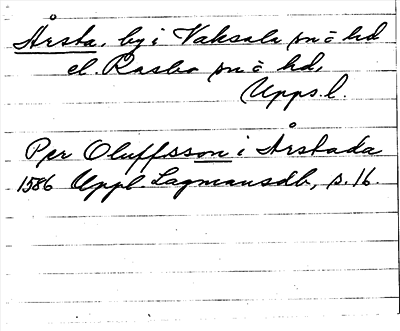 Årsta, by i Vaksala sn o hd
el. Rasbo sn o hd,
Upps. l.
Per Oluffsson i Årstada
1586 Uppl Lagmansdb, s. 16.